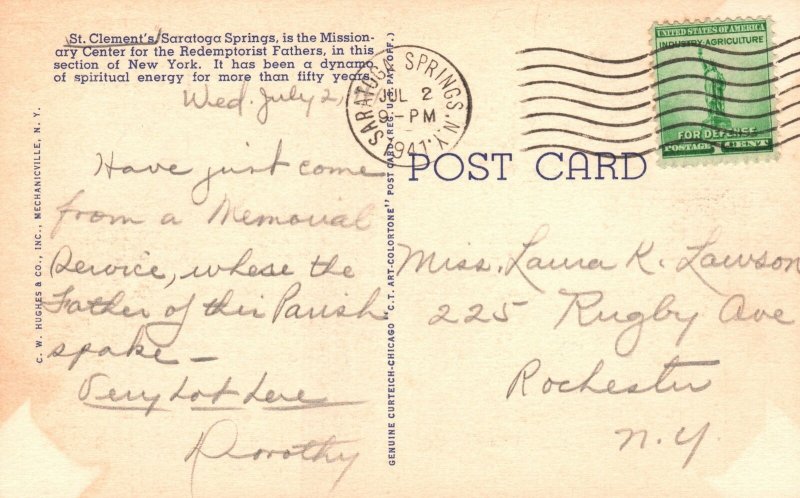 St. Clement's, Saratoga Springs, is the Mission-
ary Center for the Redemptorist Fathers, in this
section of New York. It has been a dynamo
of spiritual energy for more than fifty years.
Wed. July 2,
Have just come
from a Memorial
Service, where the
Father of this Parish
spoke —
Very hot here
Dorothy
C. W. HUGHES & CO., INC., MECHANICVILLE, N. Y.
GENUINE CURTEICH-CHICAGO "C.T. ART-COLORTONE" POST CARD (REG. U.S. PAT. OFF.)
SARATOGA SPRINGS, N.Y.
JUL 2
9 - PM
1941
UNITED STATES OF AMERICA
INDUSTRY-AGRICULTURE
FOR DEFENSE
POSTAGE 1 CENT
POST CARD
Miss. Laura K. Lawson
225 Rugby Ave
Rochester
N.Y.